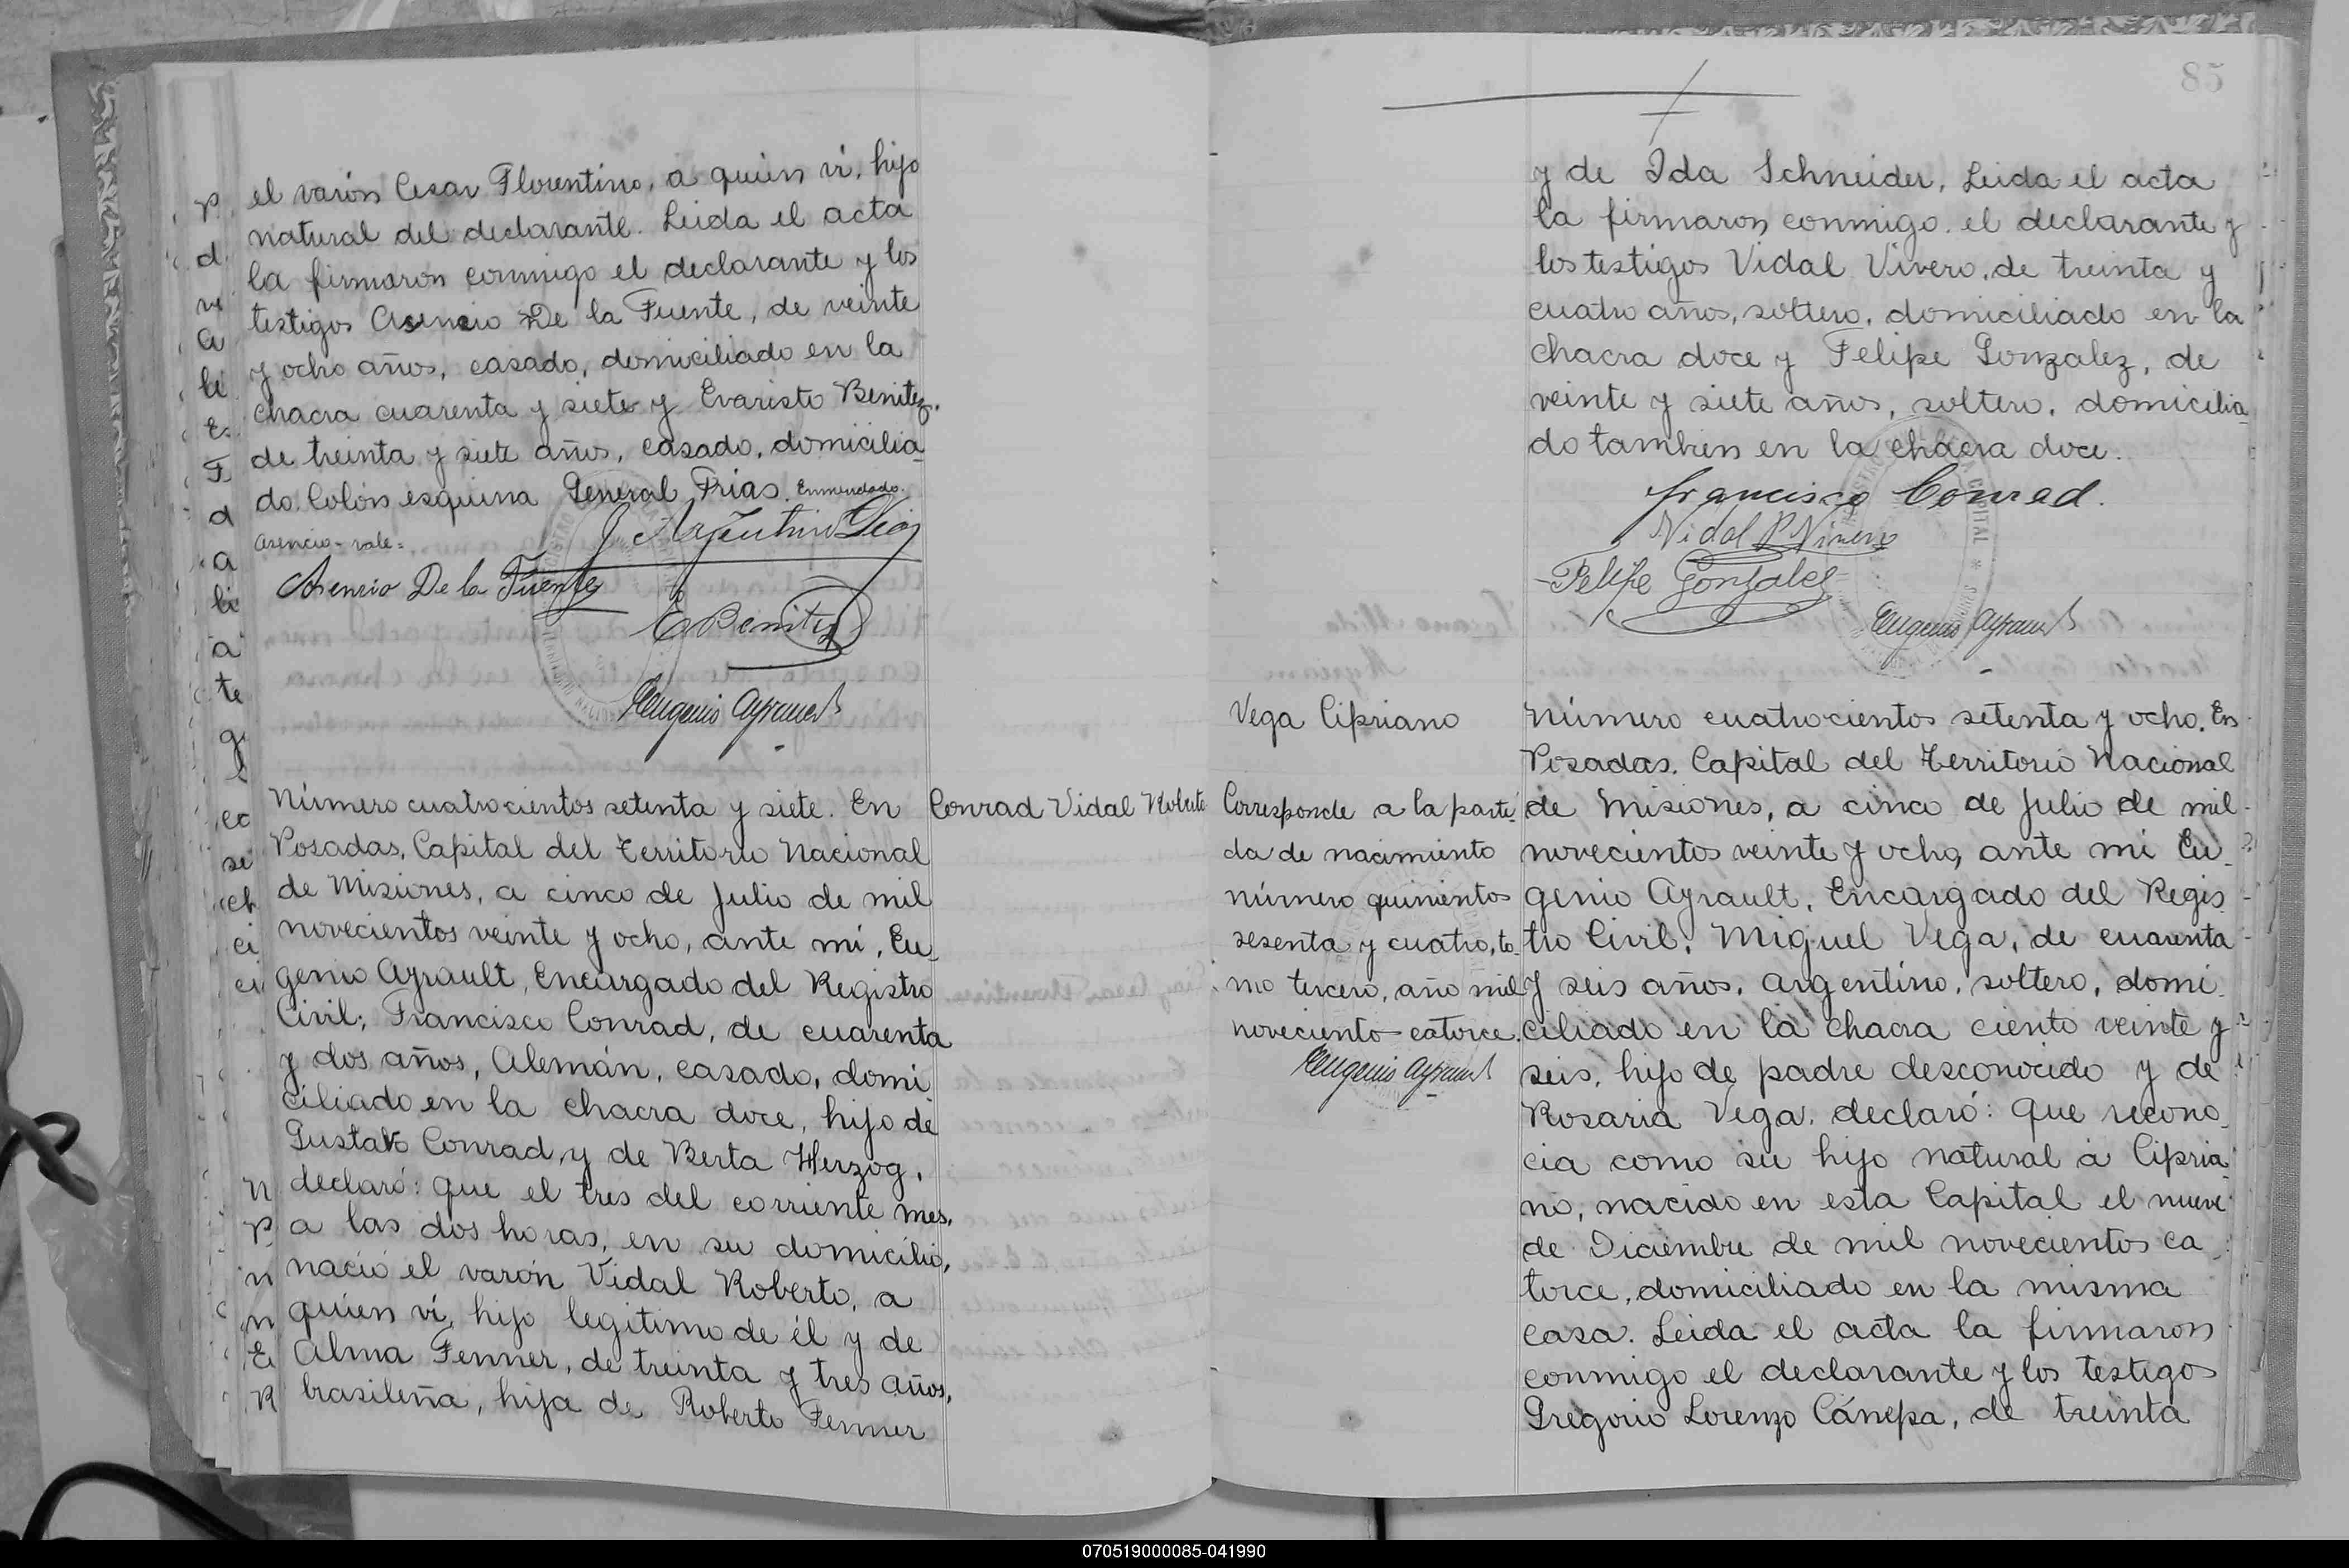 el varón Cesar Florentino, a quien vi, hijo
natural del declarante. Leida el acta
la firmaron conmigo el declarante y los
testigos Asencio De la Fuente, de veinte
y ocho años, casado, domiciliado en la
chacra cuarenta y siete y Evaristo Benitez,
de treinta y siete años, casado, domicilia
do Colón esquina General Frias. Enmendado.
asencio-vale=
J Argentino
Asencio De la Fuente
E Benitez
Eugenio Ayrault
Número cuatrocientos setenta y siete. En
Posadas, Capital del Territorio Nacional
de Misiones, a cinco de Julio de mil
novecientos veinte y ocho, ante mi, Eu
genio Ayrault, Encargado del Registro
Civil; Francisco Conrad, de cuarenta
y dos años, Alemán, casado, domi
ciliado en la chacra doce, hijo de
Gustavo Conrad, y de Berta Herzog,
declaró: que el tres del corriente mes,
a las dos horas, en su domicilio,
nació el varón Vidal Roberto, a
quien vi, hijo legitimo de él y de
Alma Fenner, de treinta y tres años,
brasileña, hija de Roberto Fenner
Conrad Vidal Roberto
85
y de Ida Schneider. Leida el acta
la firmaron conmigo el declarante y
los testigos Vidal Vivero, de treinta y
cuatro años, soltero, domiciliado en la
chacra doce y Felipe Gonzalez, de
veinte y siete años, soltero, domicilia
do tambien en la chacra doce.
Francisco Conrad.
Vidal P Vivero
Felipe Gonzalez
Eugenio Ayrault
Vega Cipriano
Corresponde a la parti
da de nacimiento
número quinientos
sesenta y cuatro, to
mo tercero, año mil
noveciento catorce.
Eugenio Ayrault
Número cuatrocientos setenta y ocho. En
Posadas, Capital del Territorio Nacional
de Misiones, a cinco de Julio de mil
novecientos veinte y ocho, ante mi Eu
genio Ayrault, Encargado del Regis
tro Civil; Miguel Vega, de cuarenta
y seis años, argentino, soltero, domi
ciliado en la chacra ciento veinte y
seis, hijo de padre desconocido y de
Rosaria Vega, declaró: que recono
cia como su hijo natural a Cipria
no, nacido en esta Capital el nueve
de Diciembre de mil novecientos ca
torce, domiciliado en la misma
casa. Leida el acta la firmaron
conmigo el declarante y los testigos
Gregorio Lorenzo Cánepa, de treinta
070519000085-041990